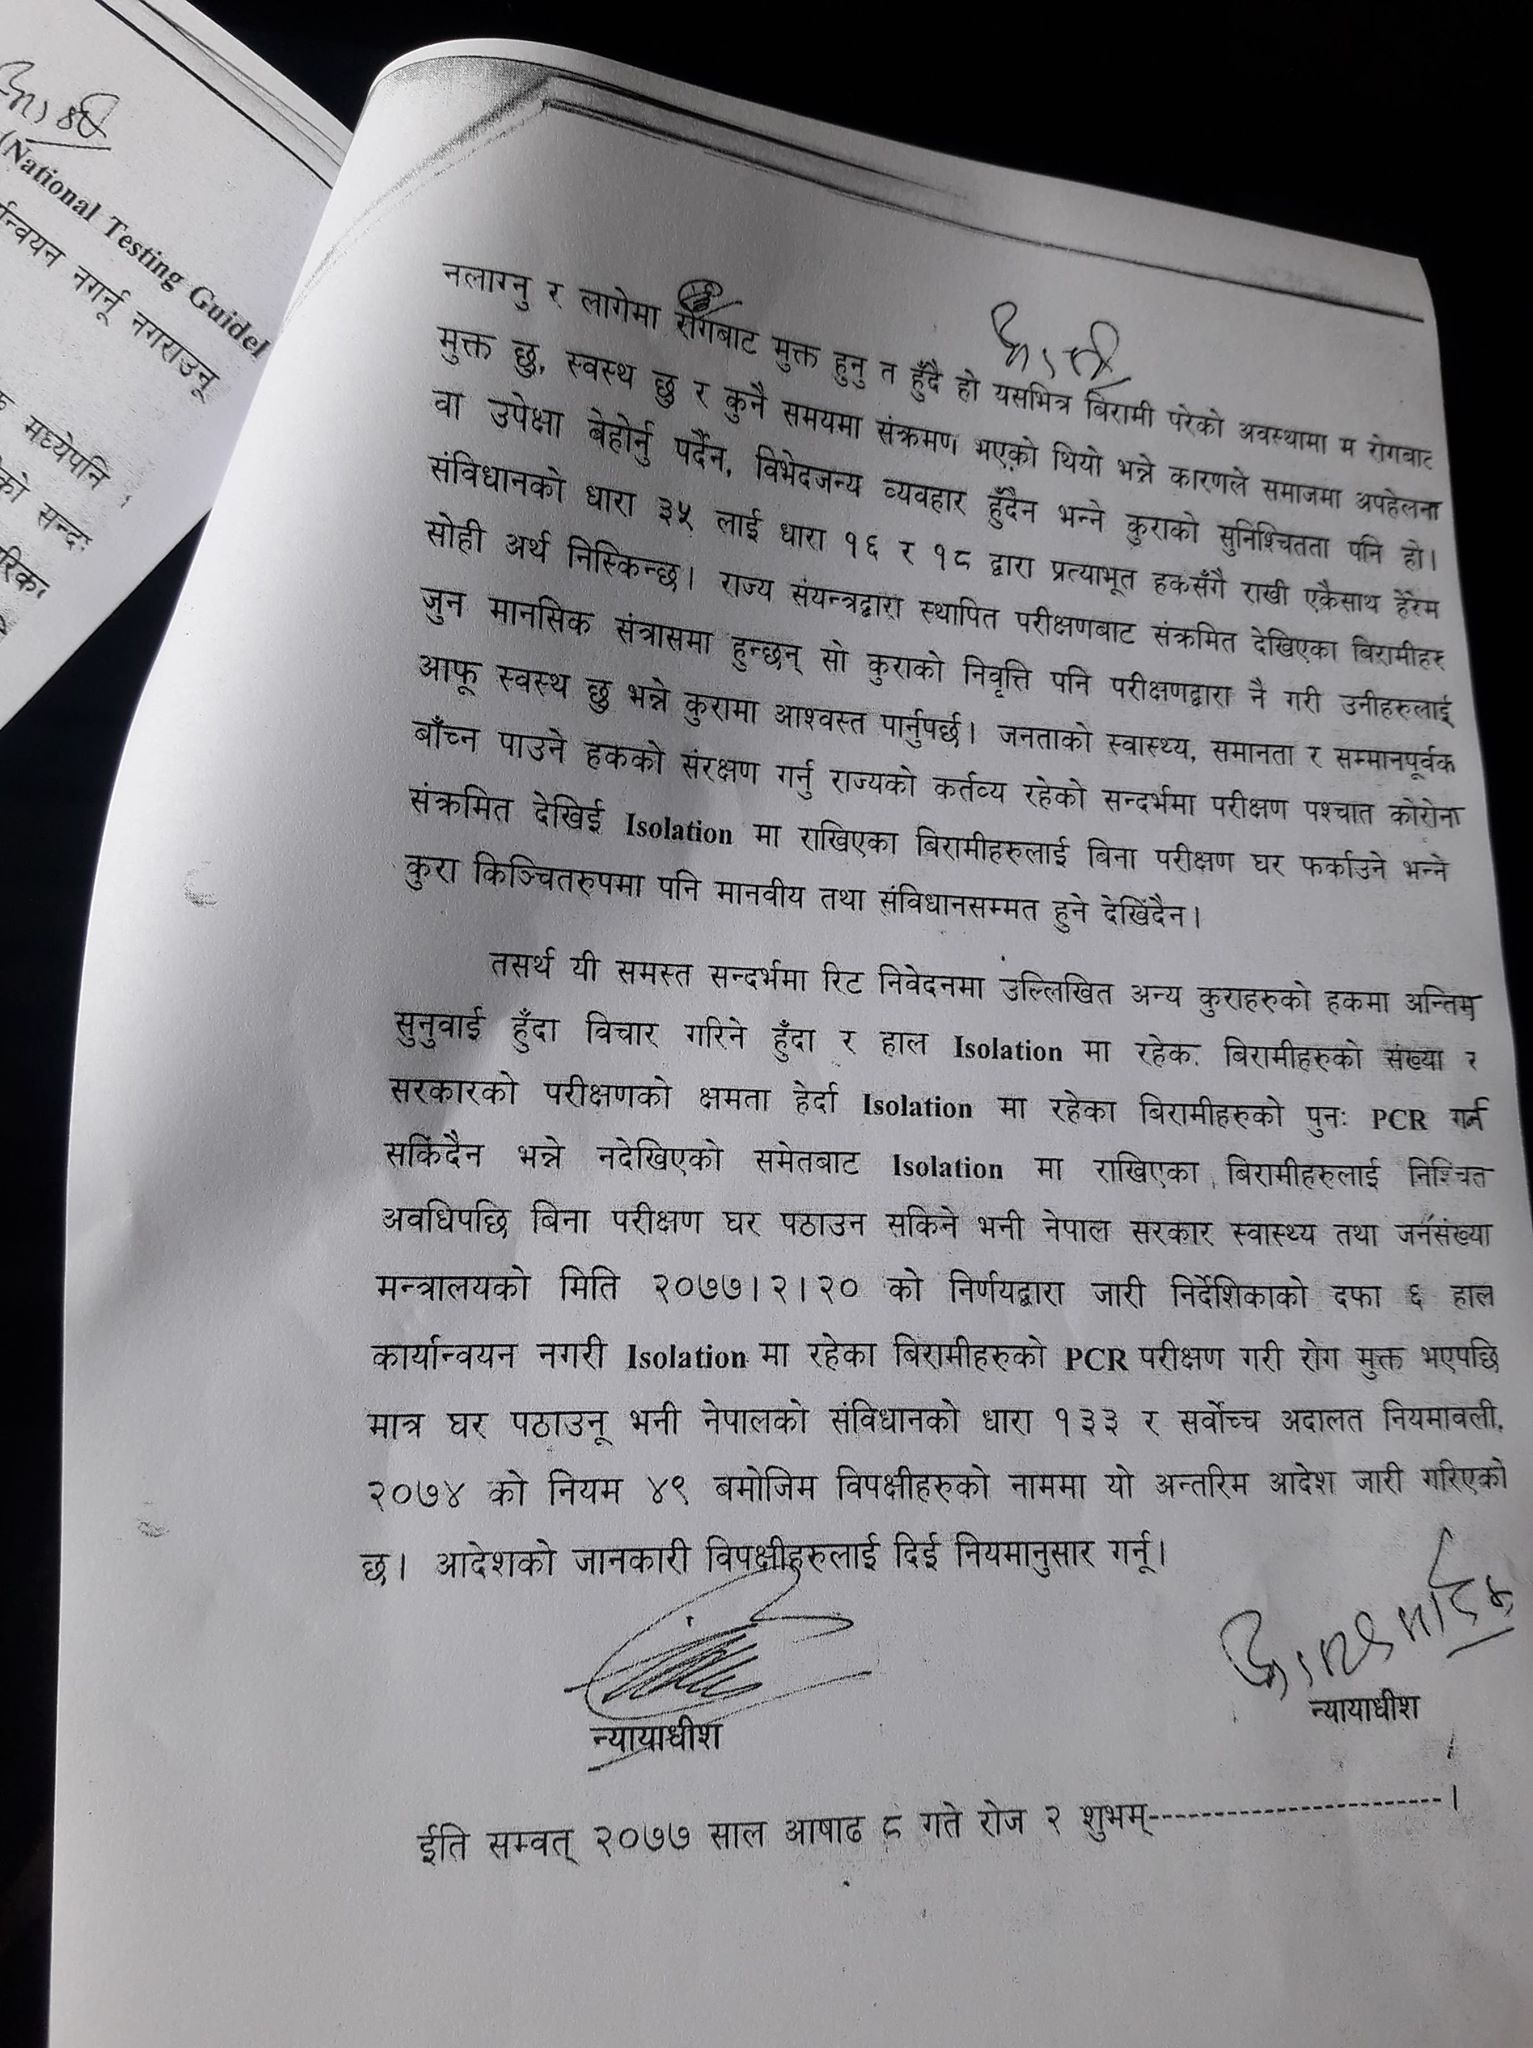 (National Testing Guidel
न्वयन नगर्नू नगराउनू
मध्येपनि
को सन्द
नलाग्नु र लागेमा रोगबाट मुक्त हुनु त हुँदै हो यसभित्र बिरामी परेको अवस्थामा म रोगबाट
मुक्त छु, स्वस्थ छु र कुनै समयमा संक्रमण भएको थियो भन्ने कारणले समाजमा अपहेलना
वा उपेक्षा बेहोर्नु पर्दैन, विभेदजन्य व्यवहार हुँदैन भन्ने कुराको सुनिश्चितता पनि हो।
संविधानको धारा ३५ लाई धारा १६ र १८ द्वारा प्रत्याभूत हकसँगै राखी एकैसाथ हेरेम
सोही अर्थ निस्किन्छ। राज्य संयन्त्रद्वारा स्थापित परीक्षणबाट संक्रमित देखिएका बिरामीहरु
जुन मानसिक संत्रासमा हुन्छन् सो कुराको निवृत्ति पनि परीक्षणद्वारा नै गरी उनीहरुलाई
आफू स्वस्थ छु भन्ने कुरामा आश्वस्त पार्नुपर्छ। जनताको स्वास्थ्य, समानता र सम्मानपूर्वक
बाँच्न पाउने हकको संरक्षण गर्नु राज्यको कर्तव्य रहेको सन्दर्भमा परीक्षण पश्चात कोरोना
संक्रमित देखिई Isolation मा राखिएका बिरामीहरुलाई बिना परीक्षण घर फर्काउने भन्ने
कुरा किञ्चितरुपमा पनि मानवीय तथा संविधानसम्मत हुने देखिंदैन।
तसर्थ यी समस्त सन्दर्भमा रिट निवेदनमा उल्लिखित अन्य कुराहरुको हकमा अन्तिम
सुनुवाई हुँदा विचार गरिने हुँदा र हाल Isolation मा रहेक बिरामीहरुको संख्या र
सरकारको परीक्षणको क्षमता हेर्दा Isolation मा रहेका बिरामीहरुको पुनः PCR गर्न
सकिंदैन भन्ने नदेखिएको समेतबाट Isolation मा राखिएका बिरामीहरुलाई निश्चित
अवधिपछि बिना परीक्षण घर पठाउन सकिने भनी नेपाल सरकार स्वास्थ्य तथा जनसंख्या
मन्त्रालयको मिति २०७७।२।२० को निर्णयद्वारा जारी निर्देशिकाको दफा ६ हाल
कार्यान्वयन नगरी Isolation मा रहेका बिरामीहरुको PCR परीक्षण गरी रोग मुक्त भएपछि
मात्र घर पठाउनू भनी नेपालको संविधानको धारा १३३ र सर्वोच्च अदालत नियमावली,
२०७४ को नियम ४९ बमोजिम विपक्षीहरुको नाममा यो अन्तरिम आदेश जारी गरिएको
छ। आदेशको जानकारी विपक्षीहरुलाई दिई नियमानुसार गर्नू।
न्यायाधीश
न्यायाधीश
ईति सम्वत् २०७७ साल आषाढ ८ गते रोज २ शुभम्------------------------।